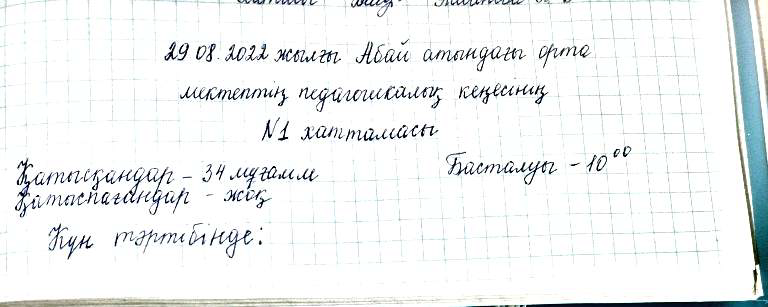 29.08.2022 жылғы Абай атындағы орта
мектептің педагогикалық кеңесінің
№1 хаттамасы
Қатысқандар - 34 мұғалім
Басталуы - 10⁰⁰
Қатыспағандар - жоқ
Күн тәртібінде: